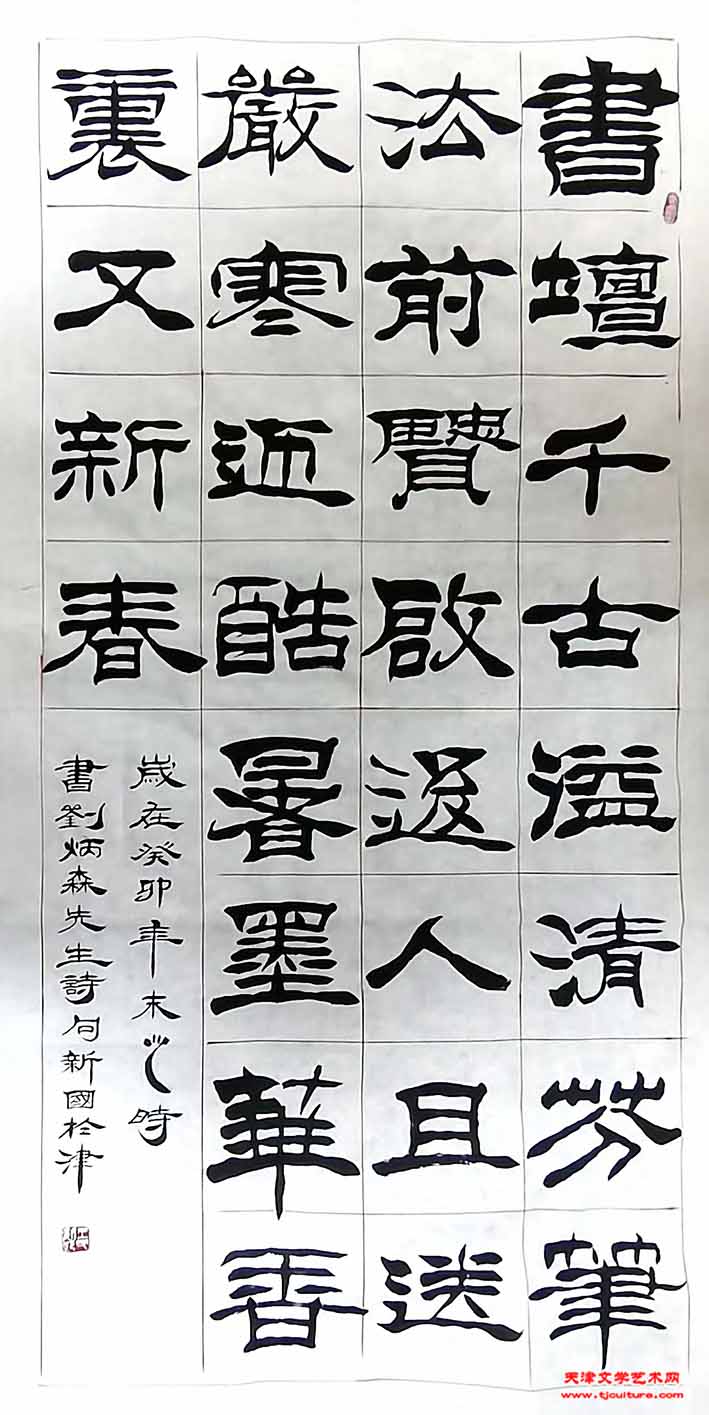 書壇千古溢清芬筆
法前賢啟後人且送
嚴寒迎酷暑墨華香
裏又新春
歲在癸卯年末之時
書劉炳森先生詩句新國於津
天津文学艺术网
www.tjculture.com